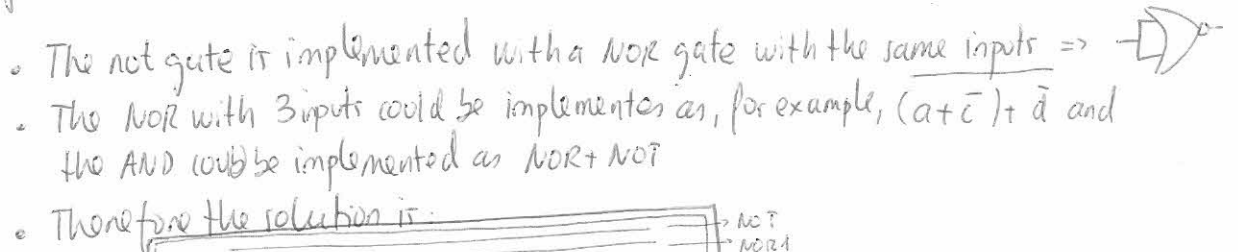 • The not gate is implemented with a NOR gate with the same inputs =>
• The NOR with 3 inputs could be implementes as, for example, (a+c̄)+ d̄ and
the AND could be implemented as NOR+ NOT
• Therefore the solution is:
NOT
NOR1